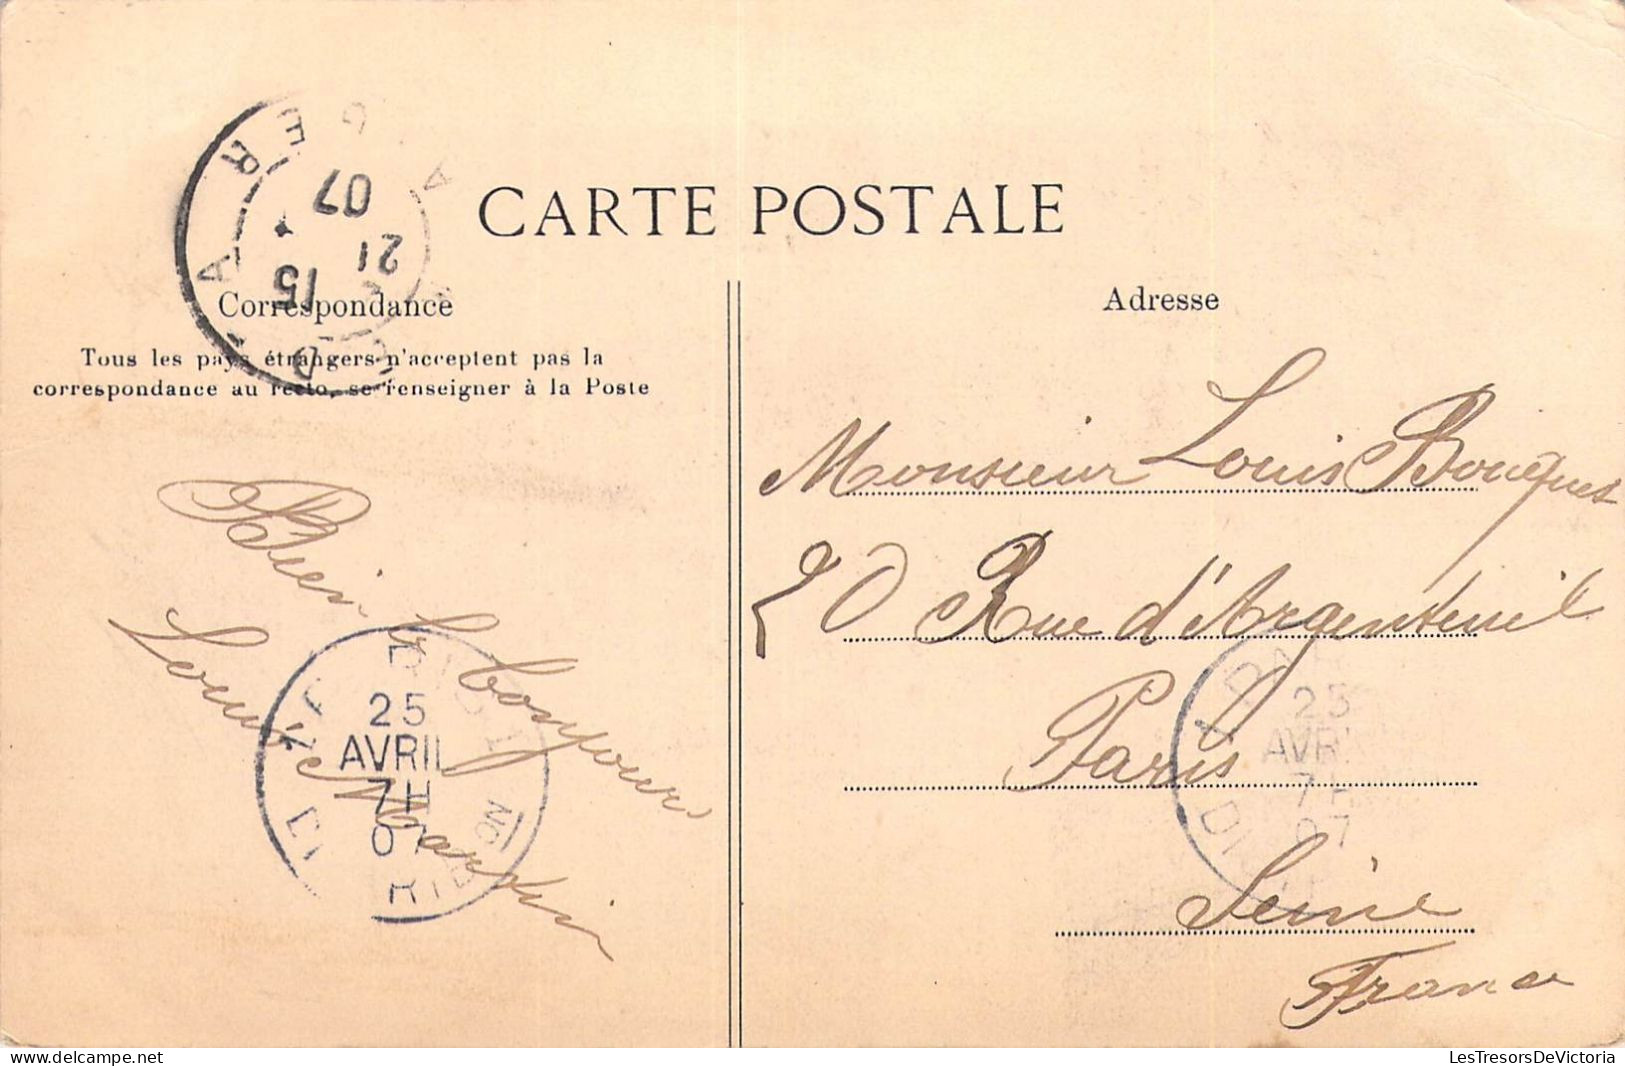 CARTE POSTALE
Correspondance
Tous les pays étrangers n'acceptent pas la
correspondance au recto, se renseigner à la Poste
Adresse
Monsieur Louis Bouques
20 Rue d'Argenteuil
Paris
Seine
France
Bien le bonjour
Louis Mardin
07
21
15
25
AVRIL
7H
07
DISTRIBUTION
25
AVR
7H
07
LesTresorsDeVictoria